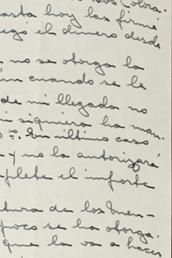 Colora-
carta hoy las firmé
pagó el dinero desde
no se otorga la
ún cuando se le
de mi llegada no
ni siquiera ha man-
En último caso
y no la autorizará
complete el importe
tura de los Men-
poco se ha otorga-
que la va a hacer